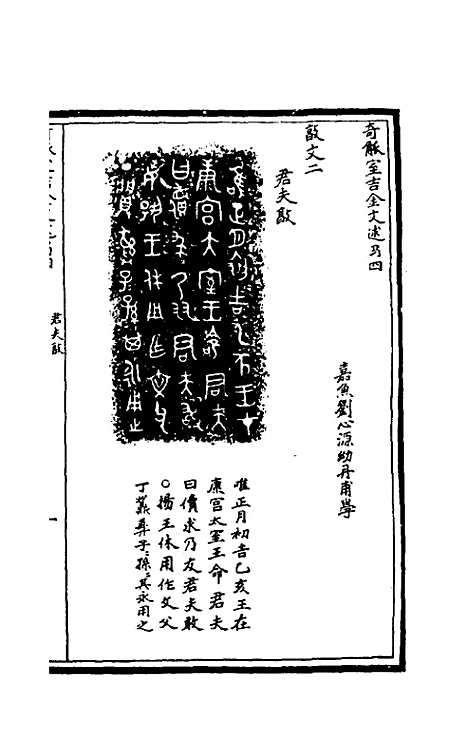 奇觚室吉金文述弓四
嘉魚劉心源幼丹甫學
敦文二
君夫敦
唯正月初吉乙亥王在
康宮太室王命君夫
曰儥求乃友君夫敢
○揚王休用作文父
丁䵼彝子〻孫〻其永用之
君夫敦
一